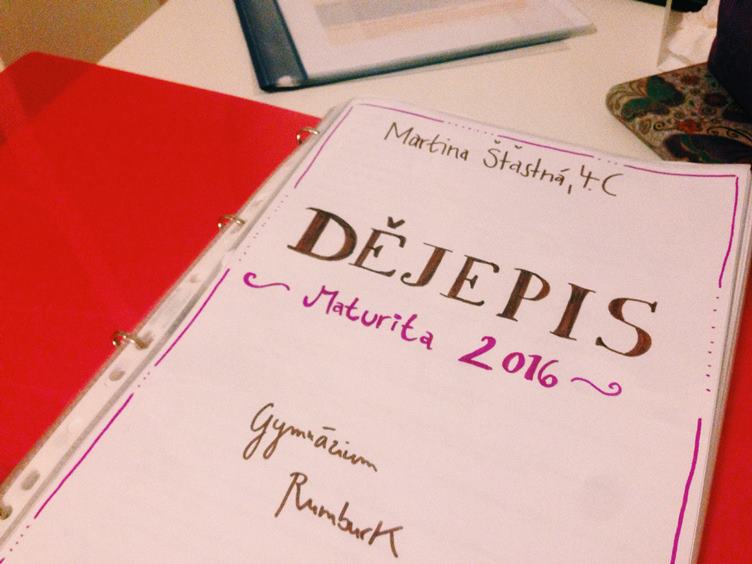 Martina Šťastná, 4.C
DĚJEPIS
Maturita 2016
Gymnázium
Rumburk